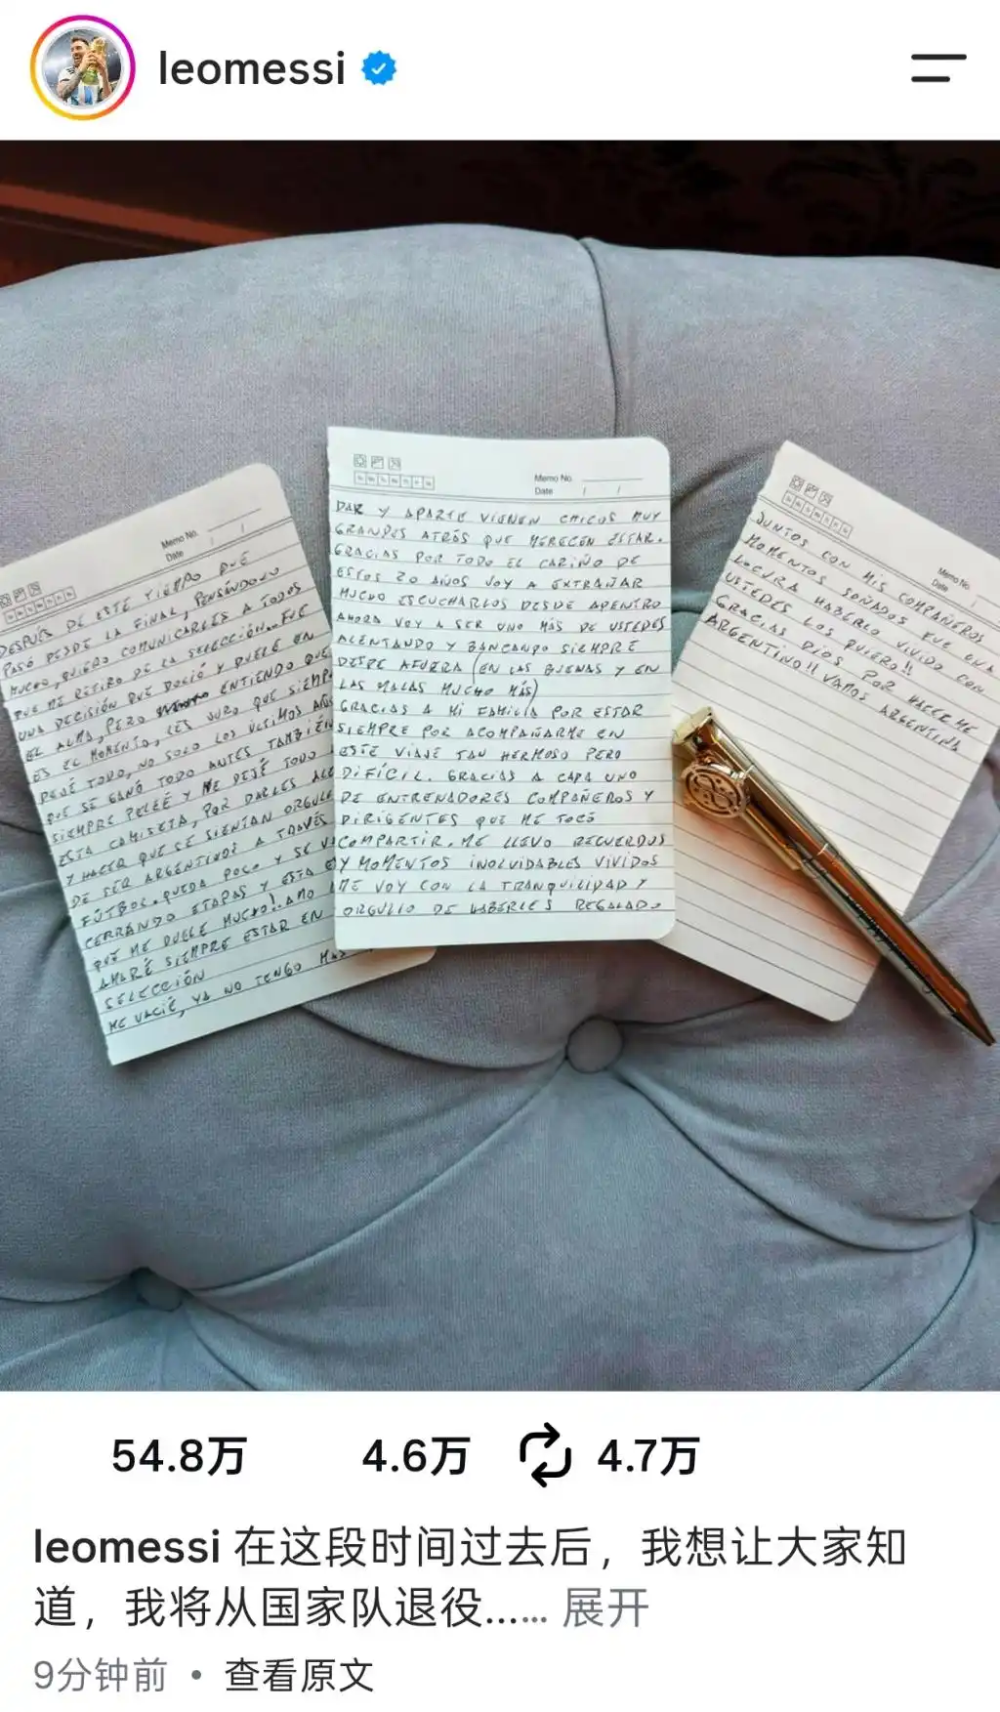 leomessi
Memo No.
Date / /
DESPUÉS DE ESTE TIEMPO QUE
PASÓ DESDE LA FINAL, PENSÁNDOLO
MUCHO, QUIERO COMUNICARLES A TODOS
QUE ME RETIRO DE LA SELECCIÓN.. FUE
UNA DECISIÓN QUE DOLIÓ Y DUELE EN
EL ALMA, PERO ENTIENDO QUE
ES EL MOMENTO, LES JURO QUE SIEMP
DEJÉ TODO, NO SOLO LOS ÚLTIMOS AÑOS
QUE SE GANÓ TODO ANTES TAMBIÉN
SIEMPRE PELEÉ Y ME DEJÉ TODO
ESTA CAMISETA, POR DARLES ALE
Y HACER QUE SE SIENTAN ORGULL
DE SER ARGENTINOS A TRAVÉS
FÚTBOL. QUEDA POCO Y SE V
CERRANDO ETAPAS Y ESTA E
QUE ME DUELE MUCHO!. AMO
AMARÉ SIEMPRE ESTAR EN
SELECCIÓN
ME VACIÉ, YA NO TENGO MÁS
Memo No.
Date / /
DAR Y APARTE VIENEN CHICOS MUY
GRANDES ATRÁS QUE MERECEN ESTAR.
GRACIAS POR TODO EL CARIÑO DE
ESTOS 20 AÑOS VOY A EXTRAÑAR
MUCHO ESCUCHARLOS DESDE ADENTRO
AHORA VOY A SER UNO MÁS DE USTEDES
ALENTANDO Y BANCANDO SIEMPRE
DESDE AFUERA (EN LAS BUENAS Y EN
LAS MALAS MUCHO MÁS)
GRACIAS A MI FAMILIA POR ESTAR
SIEMPRE POR ACOMPAÑARME EN
ESTE VIAJE TAN HERMOSO PERO
DIFÍCIL. GRACIAS A CADA UNO
DE ENTRENADORES COMPAÑEROS Y
DIRIGENTES QUE ME TOCÓ
COMPARTIR. ME LLEVO RECUERDOS
Y MOMENTOS INOLVIDABLES VIVIDOS
ME VOY CON LA TRANQUILIDAD Y
ORGULLO DE HABERLES REGALADO
Memo No.
Date /
JUNTOS CON MIS COMPAÑEROS
MOMENTOS SOÑADOS FUE UNA
LOCURA HABERLO VIVIDO CON
USTEDES LOS QUIERO!!
GRACIAS DIOS POR HACERME
ARGENTINO!! VAMOS ARGENTINA
54.8万 4.6万 4.7万
leomessi 在这段时间过去后，我想让大家知
道，我将从国家队退役...... 展开
9分钟前 • 查看原文